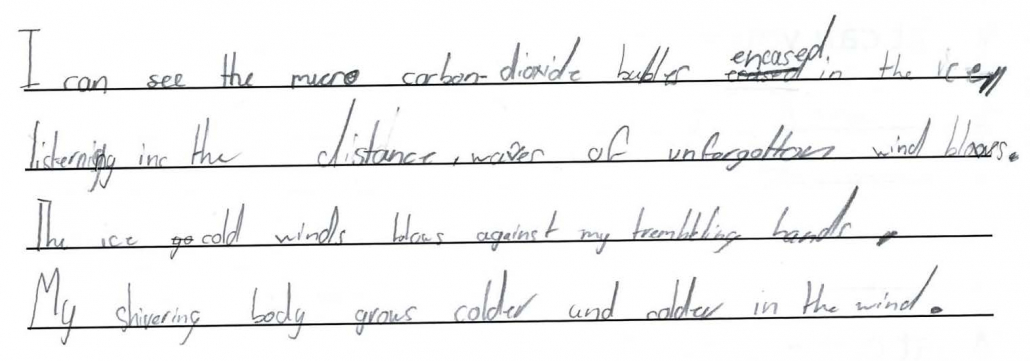 I can see the micro carbon-dioxide bubbles encased in the ice,
listerning inc the distance, waves of unforgotton wind blows.
The ice cold winds blows against my trembling hands,
My shivering body grows colder and colder in the wind.